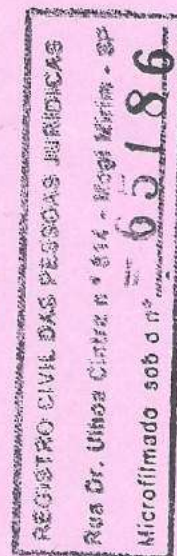 REGISTRO CIVIL DAS PESSOAS JURIDICAS
Rua Dr. Ulhoa Cintra nº 814 - Mogi Mirim - SP
Microfilmado sob o nº 65186